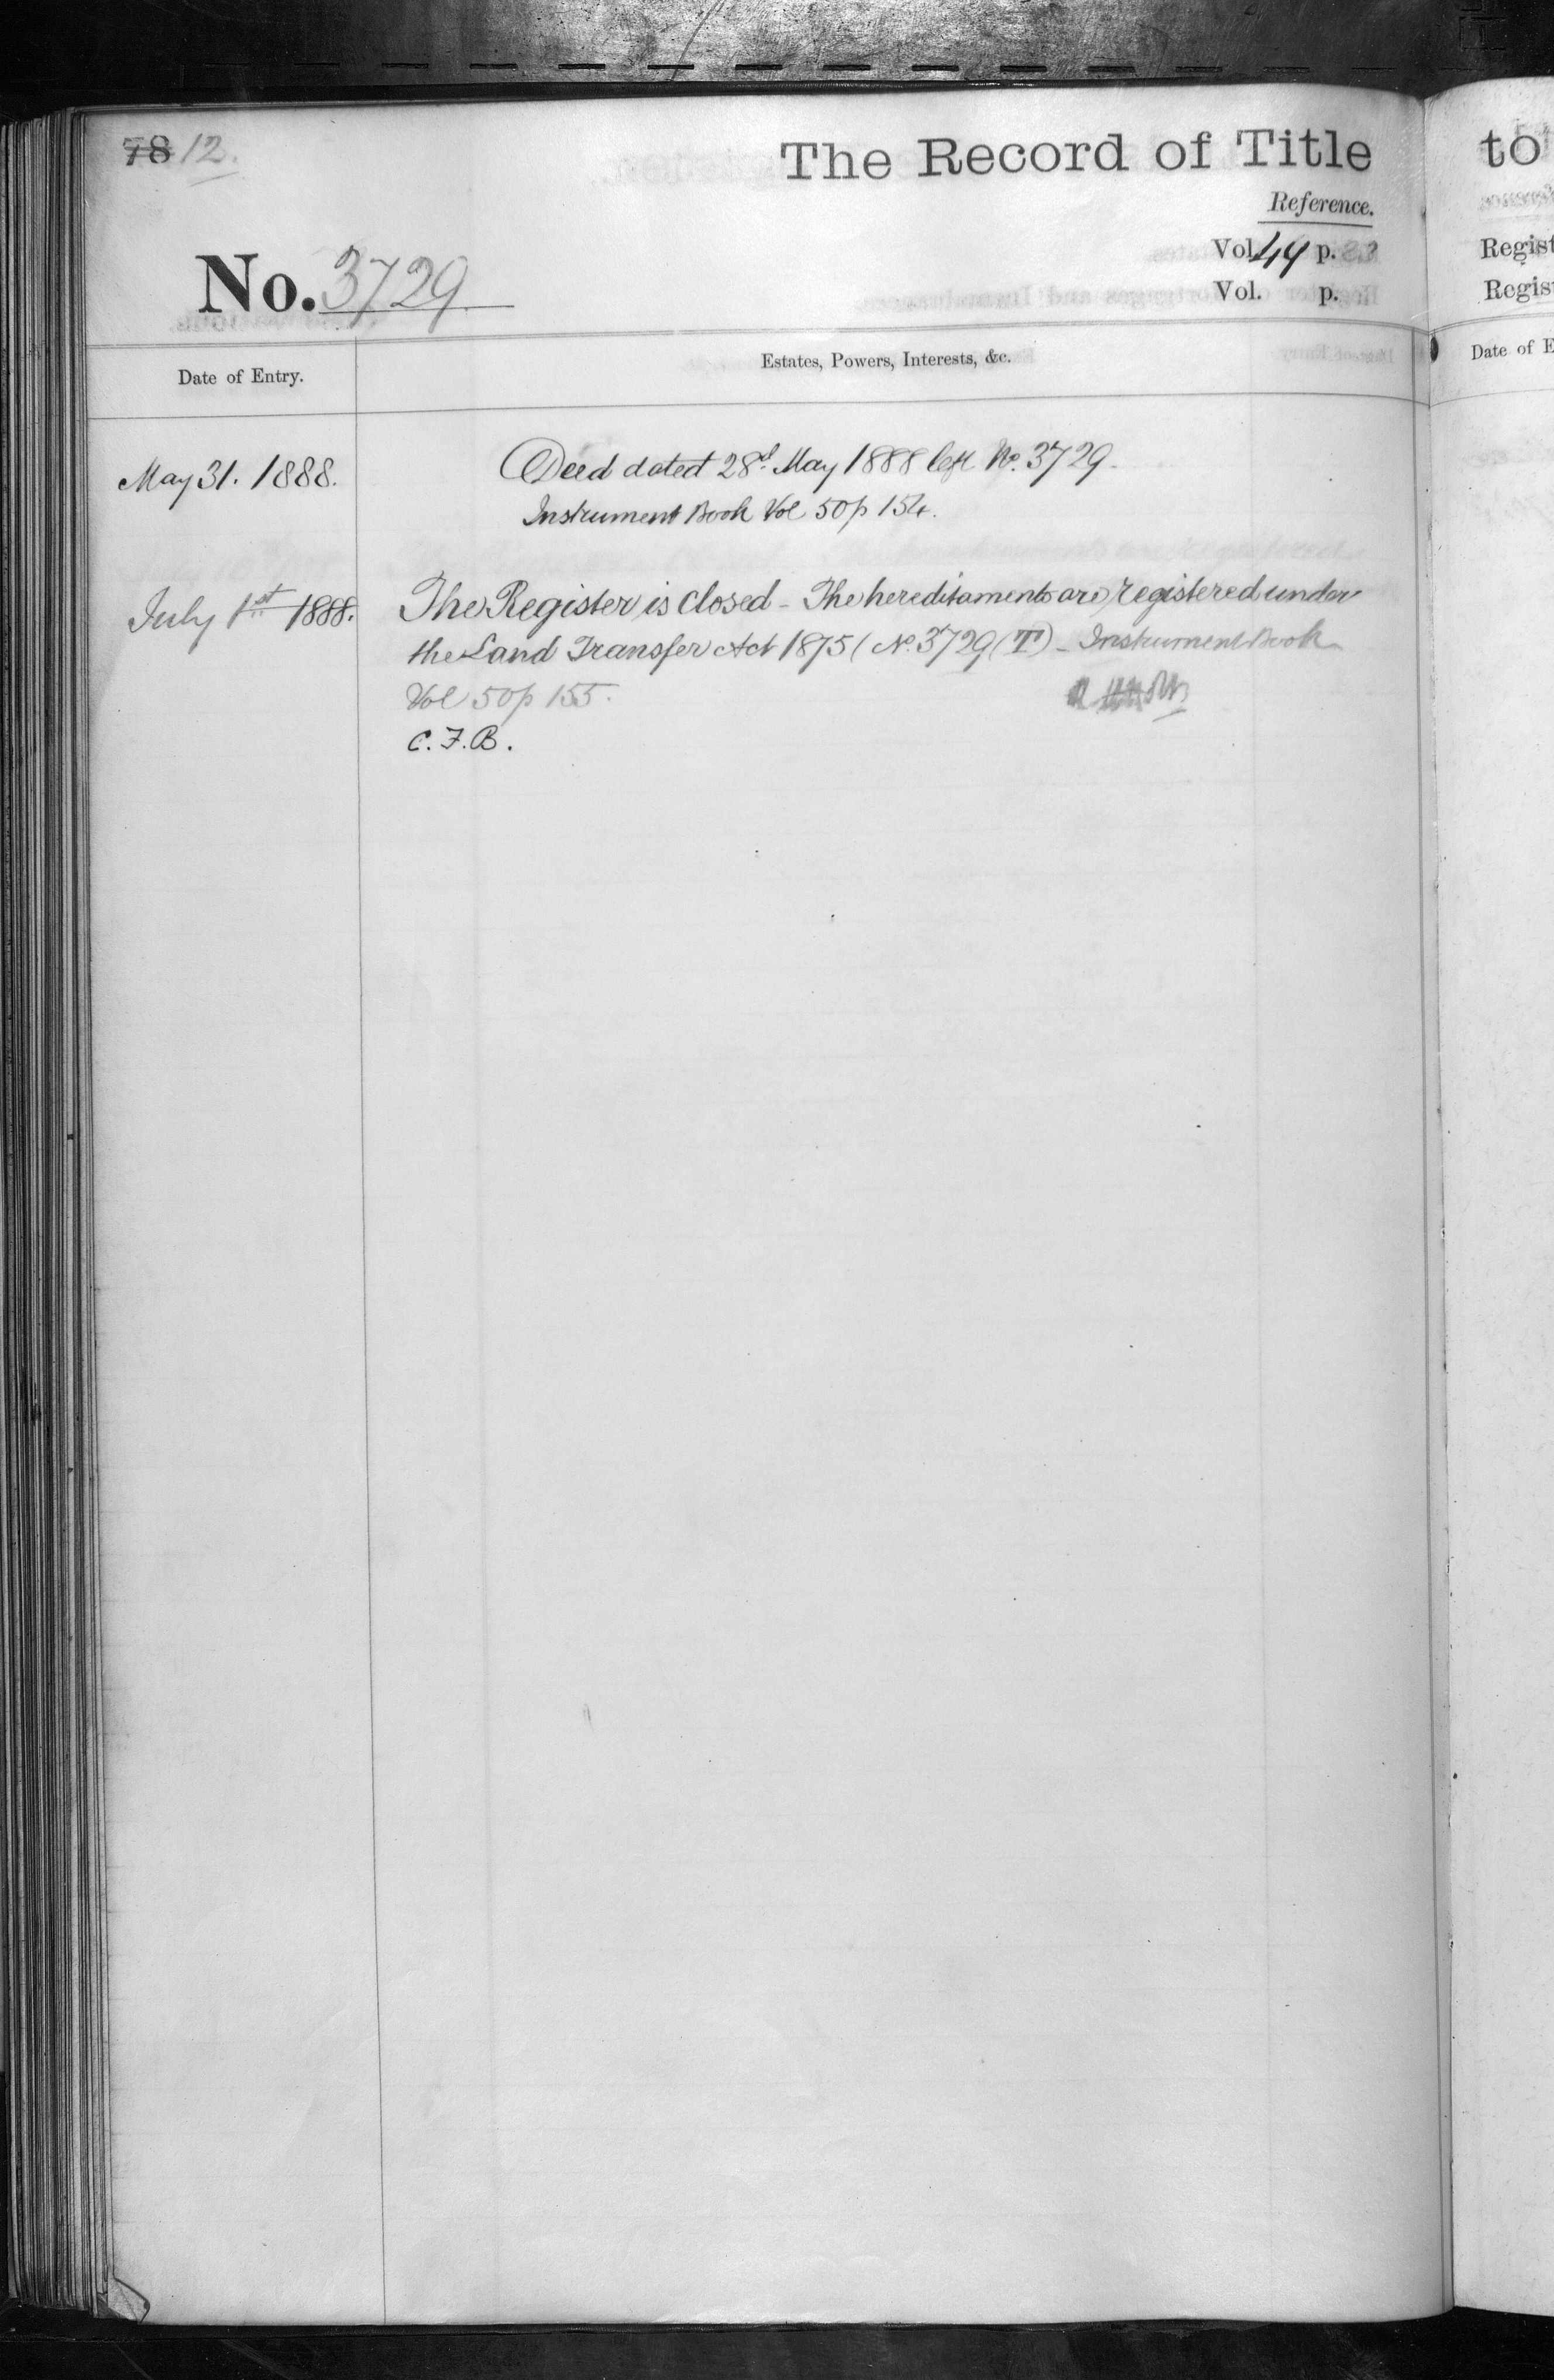 78 12.
The Record of Title
Reference.
No. 3729
Vol. 44 p.
Vol. p.
Date of Entry.
Estates, Powers, Interests, &c.
May 31. 1888.
Deed dated 28th May 1888 left No. 3729.
Instrument Book Vol 50 p 154.
July 1st 1888.
The Register is Closed - The hereditaments are registered under
the Land Transfer Act 1875 (No. 3729 (T) - Instrument Book
Vol 50 p 155.
C. F. B.
to
Regist
Regis
Date of E